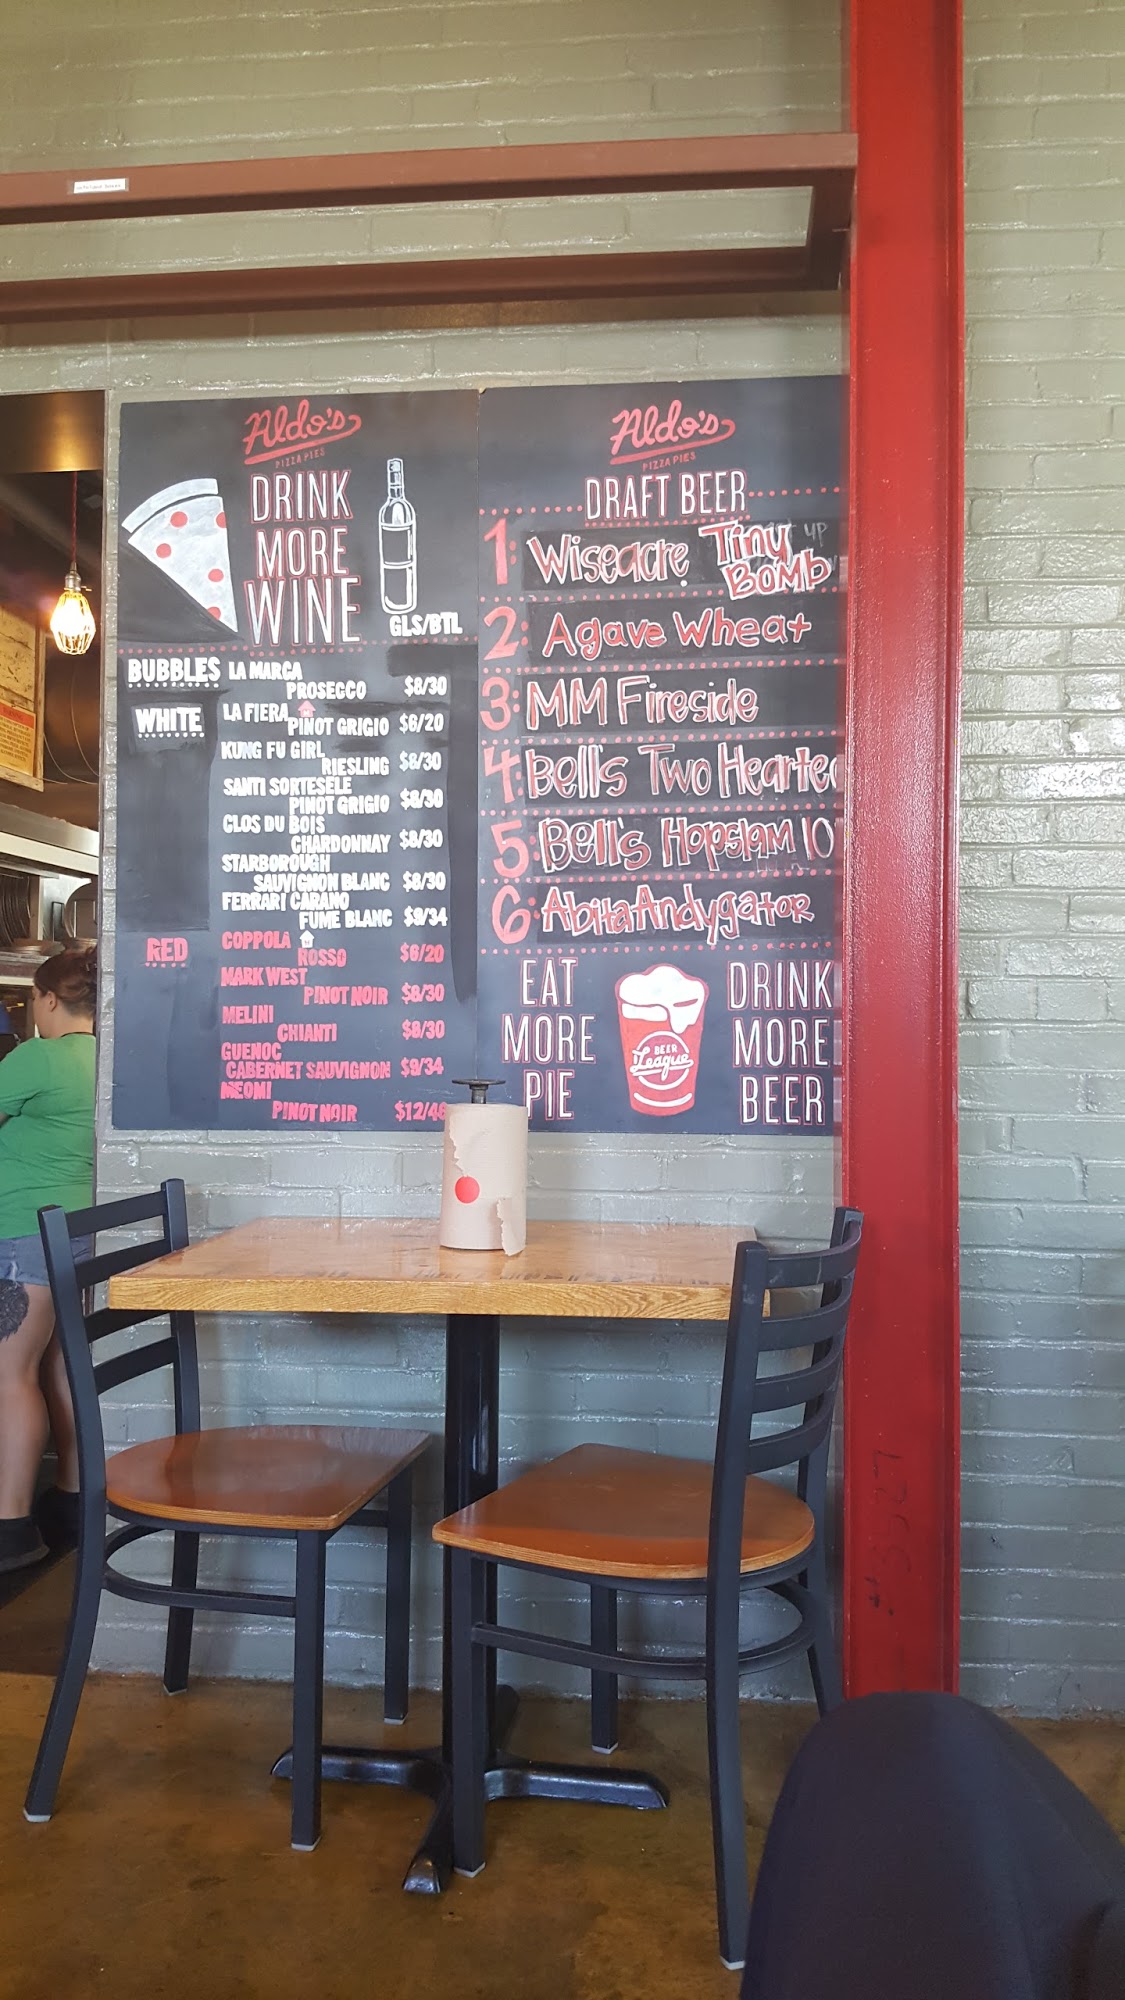 Aldo's
PIZZA PIES
DRINK
MORE
WINE
GLS/BTL
BUBBLES LA MARCA
PROSECCO $8/30
WHITE LA FIERA
PINOT GRIGIO $6/20
KUNG FU GIRL
RIESLING $8/30
SANTI SORTESELE
PINOT GRIGIO $8/30
CLOS DU BOIS
CHARDONNAY $8/30
STARBOROUGH
SAUVIGNON BLANC $8/30
FERRARI CARANO
FUME BLANC $9/34
RED COPPOLA
ROSSO $6/20
MARK WEST
PINOT NOIR $8/30
MELINI
CHIANTI $8/30
GUENOC
CABERNET SAUVIGNON $9/34
MEOMI
PINOT NOIR
Aldo's
PIZZA PIES
DRAFT BEER
1: Wiseacre Tiny
BOMB
2: Agave Wheat
3: MM Fireside
4: Bell's Two Hearted
5: Bell's Hopslam 10
6: Abita Andygator
EAT
MORE
PIE
BEER
League
DRINK
MORE
BEER
# 3927